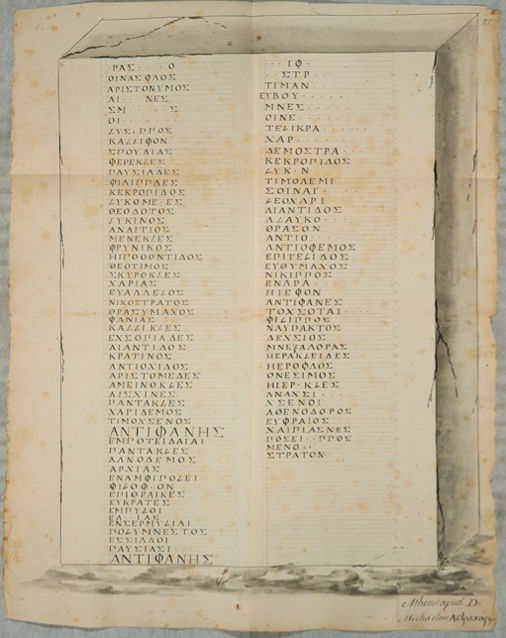 ΡΑΣ Ο
ΟΙΝΑΣΦΛΟΣ
ΑΡΙΣΤΟΝΥΜΟΣ
ΑΙ ΝΕΣ
ΣΜ Σ
ΟΙ
ΛΥΣ·ΠΡΟΣ
ΚΑΛΛΙΦΟΝ
ΣΠΟΥΔΙΑΣ
ΦΕΡΕΚΛΕΣ
ΠΑΥΣΙΑΔΕΣ
ΦΙΛΙΠΠΔΕΣ
ΚΕΚΡΟΠΙΔΟΣ
ΛΥΚΟΜΕ·ΕΣ
ΘΕΟΔΟΤΟΣ
ΛΥΚΙΝΟΣ
ΑΝΑΙΤΙΟΣ
ΜΕΝΕΚΛΕΣ
ΦΡΥΝΙΚΟΣ
ΗΙΠΟΘΟΝΤΙΔΟΣ
ΘΕΟΤΙΜΟΣ
ΣΚΥΡΟΚΛΕΣ
ΧΑΡΙΑΣ
ΕΥΑΛΛΕΛΟΣ
ΝΙΚΟΣΤΡΑΤΟΣ
ΘΡΑΣΥΜΑΧΟΣ
ΦΑΝΙΑΣ
ΚΑΛΛΙΚΛΕΣ
ΕΧΣΟΠΙΑΔΕΣ
ΑΙΑΝΤΙΔΟΣ
ΚΡΑΤΙΝΟΣ
ΑΝΤΙΟΧΙΔΟΣ
ΑΡΙΣΤΟΜΕΔΕΣ
ΑΜΕΙΝΟΚΛΕΣ
ΑΙΣΧΙΝΕΣ
ΠΑΝΤΑΚΛΕΣ
ΧΑΡΙΔΕΜΟΣ
ΤΙΜΟΧΣΕΝΟΣ
ΑΝΤΙΦΑΝΗΣ
ΕΜΠΟΤΕΙΔΑΙΑΙ
ΠΑΝΤΑΚΛΕΣ
ΑΓΝΟΔΕΜΟΣ
ΑΡΧΙΑΣ
ΕΝΑΜΦΙΠΟΛΕΙ
ΦΙΛΟΦ·ΟΝ
ΕΠΙΘΡΑΙΚΕΣ
ΕΥΚΡΑΤΕΣ
ΕΜΠΥΛΟΙ
ΕΝΣΕΡΜΥΛΙΑΙ
ΠΟΛΥΜΝΕΣΤΟΣ
ΕΣΣΙΛΛΟΙ
ΠΑΥΣΙΑΣΙ
ΑΝΤΙΦΑΝΗΣ
ΙΦ
ΣΤΡ
ΤΙΜΑΝ
ΕΥΒΟΥ
ΜΝΕΣ
ΟΙΝΕ
ΤΕΛΙΚΡΑ
ΧΑΡ
ΔΕΜΟΣΤΡΑ
ΚΕΚΡΟΠΙΔΟΣ
ΛΥΚ·Ν
ΤΙΜΟΛΕΜΙ
ΣΟΙΝΑΥ
ΛΕΟΧΑΡΙ
ΑΙΑΝΤΙΔΟΣ
ΑΛΑΥΚΟ
ΘΡΑΣΟΝ
ΑΝΤΙΟ
ΑΝΤΙΟΦΕΜΟΣ
ΕΠΙΤΕΛΙΔΟΣ
ΕΥΘΥΜΑΧΟΣ
ΝΙΚΙΠΠΟΣ
ΕΝΑΡΑ
ΗΙΕΦΟΝ
ΑΝΤΙΦΑΝΕΣ
ΤΟΧΣΟΤΑΙ
ΦΙΛΙΠΠΟΣ
ΝΑΥΠΑΚΤΟΣ
ΔΕΧΣΙΟΣ
ΜΝΕΣΑΛΟΡΑΣ
ΗΕΡΑΚΛΕΙΔΕΣ
ΗΕΡΟΦΛΟΣ
ΟΝΕΣΙΜΟΣ
ΗΙΕΡ·ΚΛΕΣ
ΑΝΑΧΣΙ
ΧΣΕΝΟΙ
ΑΘΕΝΟΔΟΡΟΣ
ΕΥΦΡΑΙΟΣ
ΧΑΙΠΙΑΣΝΕΣ
ΠΟΣΕΙ··ΠΡΟΣ
ΜΕΝΟ
ΣΤΡΑΤΟΝ
Athenis apud D.
Michaelem